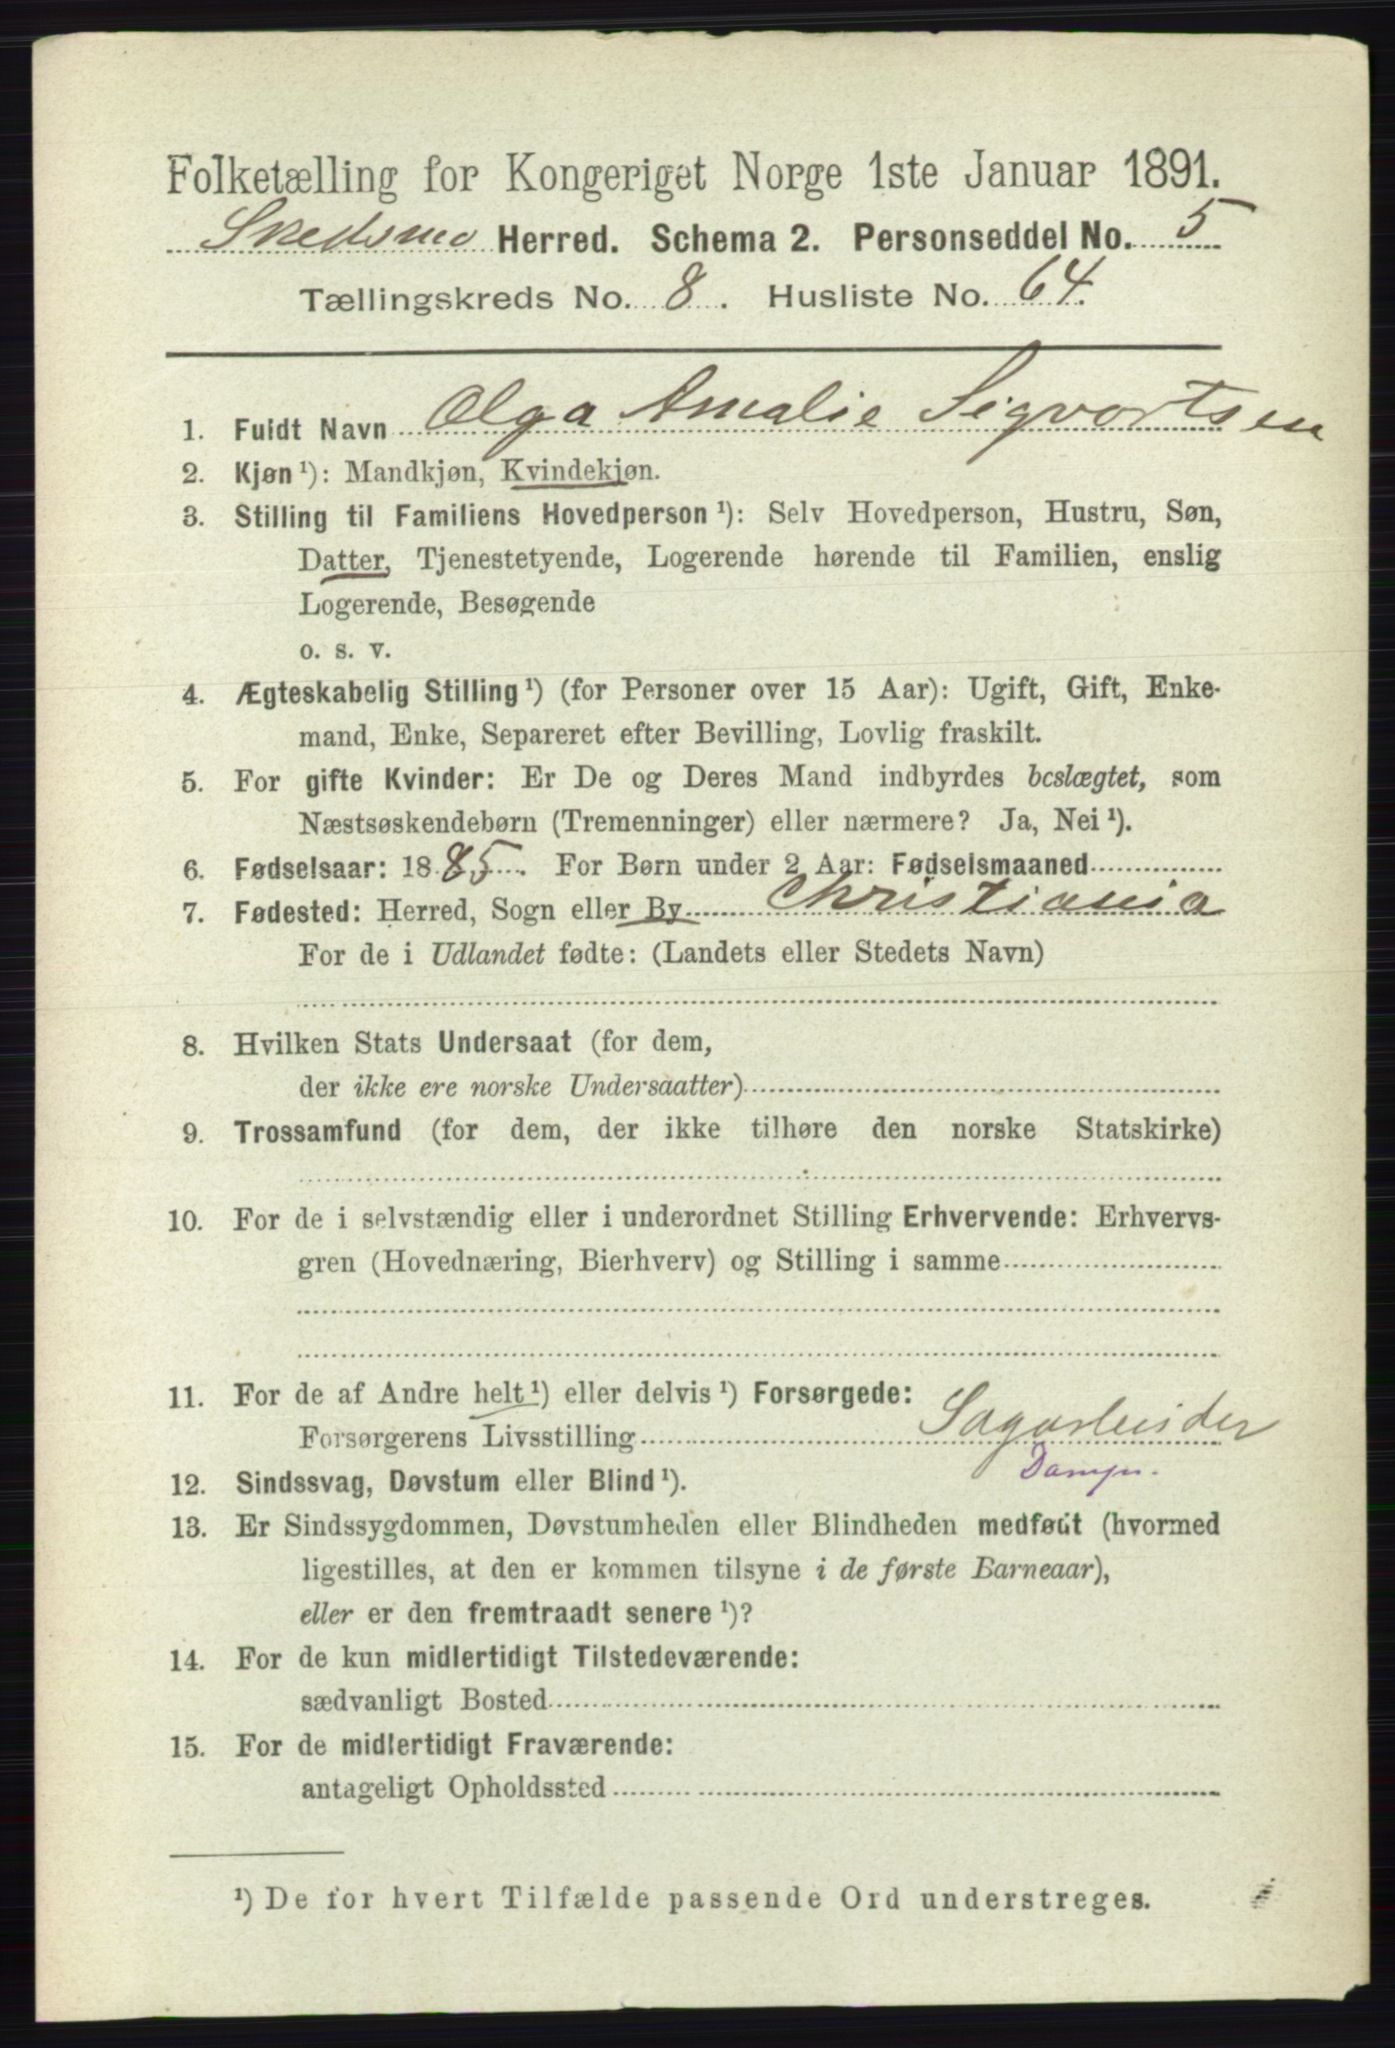 Folketælling for Kongeriget Norge 1ste Januar 1891.
Skedsmo Herred. Schema 2. Personseddel No. 5
Tællingskreds No. 8. Husliste No. 64.
1. Fuldt Navn Olga Amalie Sigvortsen
2. Kjøn ¹): Mandkjøn, Kvindekjøn.
3. Stilling til Familiens Hovedperson ¹): Selv Hovedperson, Hustru, Søn,
Datter, Tjenestetyende, Logerende hørende til Familien, enslig
Logerende, Besøgende
o. s. v.
4. Ægteskabelig Stilling ¹) (for Personer over 15 Aar): Ugift, Gift, Enke-
mand, Enke, Separeret efter Bevilling, Lovlig fraskilt.
5. For gifte Kvinder: Er De og Deres Mand indbyrdes beslægtet, som
Næstsøskendebørn (Tremenninger) eller nærmere? Ja, Nei ¹).
6. Fødselsaar: 1885. For Børn under 2 Aar: Fødselsmaaned
7. Fødested: Herred, Sogn eller By Christiania
For de i Udlandet fødte: (Landets eller Stedets Navn)
8. Hvilken Stats Undersaat (for dem,
der ikke ere norske Undersaatter)
9. Trossamfund (for dem, der ikke tilhøre den norske Statskirke)
10. For de i selvstændig eller i underordnet Stilling Erhvervende: Erhvervs-
gren (Hovednæring, Bierhverv) og Stilling i samme
11. For de af Andre helt ¹) eller delvis ¹) Forsørgede:
Forsørgerens Livsstilling Sagarbeider
Damp.
12. Sindssvag, Døvstum eller Blind ¹).
13. Er Sindssygdommen, Døvstumheden eller Blindheden medfødt (hvormed
ligestilles, at den er kommen tilsyne i de første Barneaar),
eller er den fremtraadt senere ¹)?
14. For de kun midlertidigt Tilstedeværende:
sædvanligt Bosted
15. For de midlertidigt Fraværende:
antageligt Opholdssted
¹) De for hvert Tilfælde passende Ord understreges.